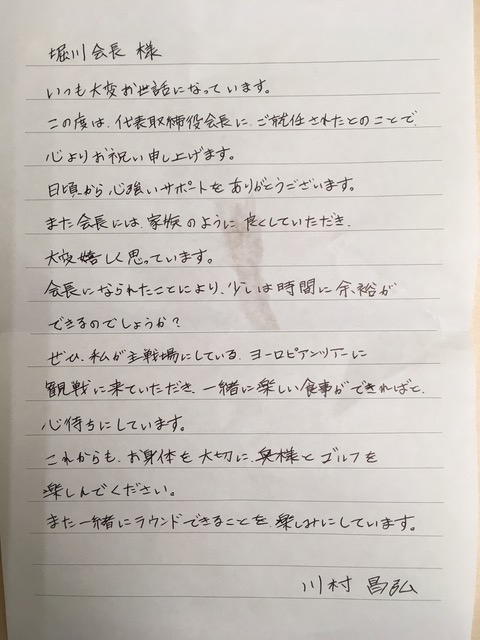 堀川会長 様
いつも大変お世話になっています。
この度は、代表取締役会長に、ご就任されたとのことで、
心よりお祝い申し上げます。
日頃から心強いサポートをありがとうございます。
また会長には、家族のように良くしていただき、
大変嬉しく思っています。
会長になられたことにより、少しは時間に余裕が
できるのでしょうか？
ぜひ、私が主戦場にしている、ヨーロピアンツアーに
観戦に来ていただき、一緒に楽しい食事ができればと、
心待ちにしています。
これからも、お身体を大切に、奥様とゴルフを
楽しんでください。
また一緒にラウンドできることを、楽しみにしています。
川村 昌弘